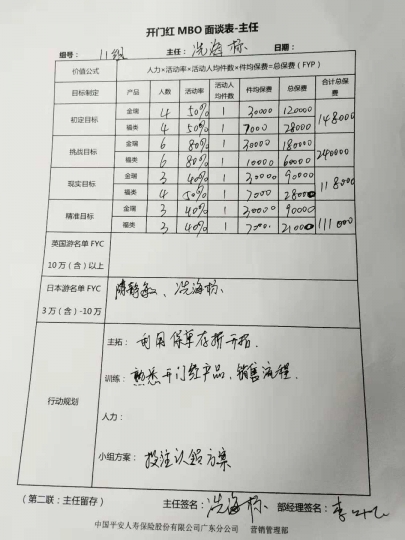 开门红 MBO 面谈表-主任
组号： 11组 主任： 冼海标 日期：
价值公式 人力×活动率×活动人均件数×件均保费=总保费（FYP）
目标制定 产品 人数 活动率 活动人均件数 件均保费 总保费 合计总保费
初定目标 金瑞 4 50% 1 30000 120000 148000
福类 4 50% 1 7000 28000
挑战目标 金瑞 6 80% 1 30000 180000 240000
福类 6 80% 1 10000 60000
现实目标 金瑞 3 40% 1 30000 90000 118000
福类 4 50% 1 7000 28000
精准目标 金瑞 3 40% 1 30000 90000 111000
福类 3 40% 1 7000 21000
英国游名单 FYC
10 万（含）以上
日本游名单 FYC
3 万（含）-10万
陈静敏、冼海标
行动规划
主拓： 利用保单存折开拓.
训练： 熟悉开门红产品、销售流程.
人力：
小组方案： 投注认铝方案
（第二联：主任留存） 主任签名： 冼海标 部经理签名：
中国平安人寿保险股份有限公司广东分公司 营销管理部